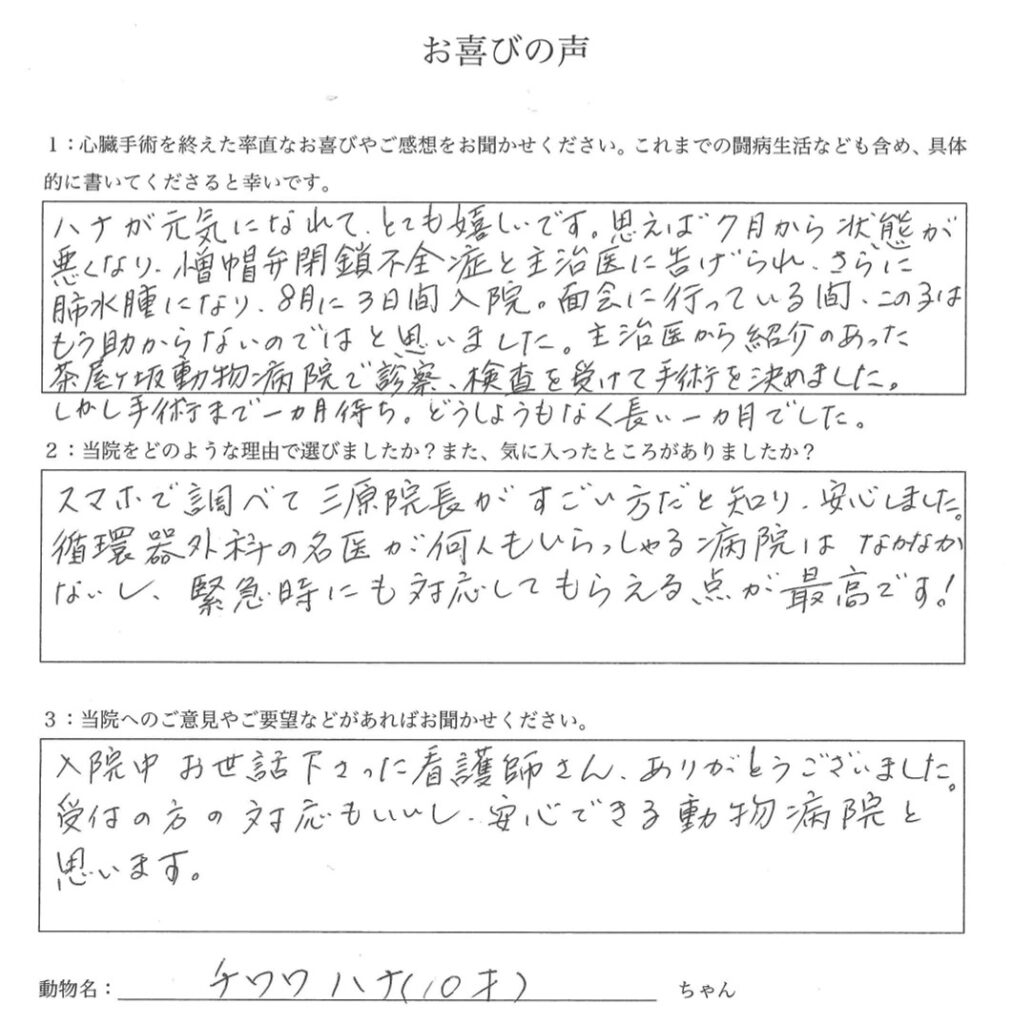 お喜びの声
1：心臓手術を終えた率直なお喜びやご感想をお聞かせください。これまでの闘病生活なども含め、具体
的に書いてくださると幸いです。
ハナが元気になれて、とても嬉しいです。思えば7月から状態が
悪くなり、憎帽弁閉鎖不全症と主治医に告げられ、さらに
肺水腫になり、8月に3日間入院。面会に行っている間、この子は
もう助からないのではと思いました。主治医から紹介のあった
茶屋ヶ坂動物病院で診察、検査を受けて手術を決めました。
しかし手術まで一カ月待ち。どうしようもなく長い一カ月でした。
2：当院をどのような理由で選びましたか？また、気に入ったところがありましたか？
スマホで調べて三原院長がすごい方だと知り、安心しました。
循環器外科の名医が何人もいらっしゃる病院はなかなか
ないし、緊急時にも対応してもらえる点が最高です！
3：当院へのご意見やご要望などがあればお聞かせください。
入院中お世話下さった看護師さん、ありがとうございました。
受付の方の対応もいいし、安心できる動物病院と
思います。
動物名：チワワ ハナ(10才) ちゃん